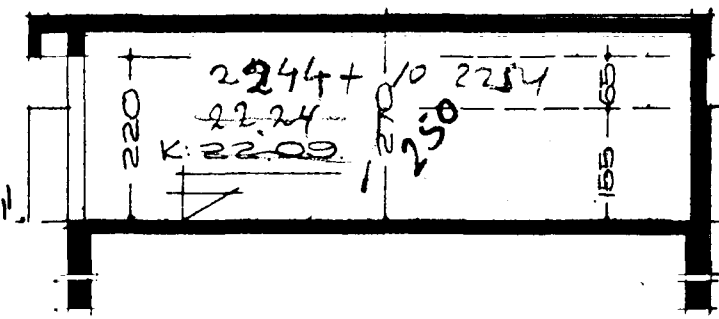 2244+10 2254
22.24
K: 22.09
220
270
250
65
155